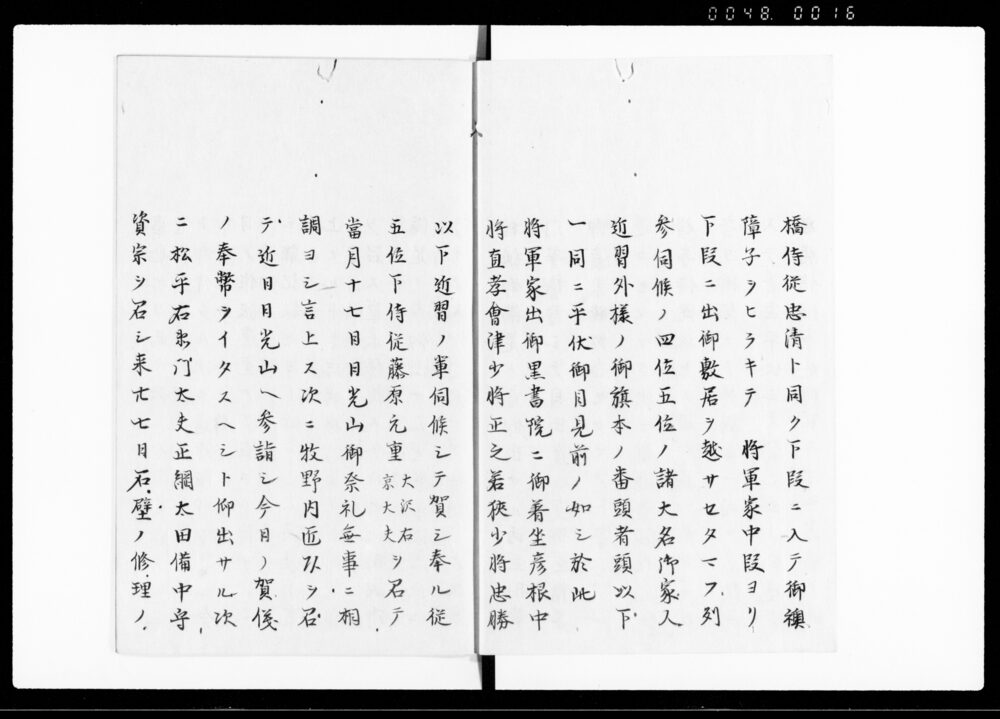 0048. 0016
橋侍従忠清ト同ク下段ニ入テ御襖
障子ヲヒラキテ　將軍家中段ヨリ
下段ニ出御敷居ヲ越サセタマフ列
参伺候ノ四位五位ノ諸大名御家人
近習外様ノ御旗本ノ番頭者頭以下
一同ニ平伏御目見前ノ如シ於此
將軍家出御黒書院ニ御着坐彦根中
將直孝會津少將正之若狹少將忠勝
以下近習ノ軰伺候シテ賀シ奉ル従
五位下侍従藤原元重大沢右京大夫ヲ召テ
當月十七日日光山御祭礼無事ニ相
調ヨシ言上ス次ニ牧野内匠以ヲ召
テ近日日光山ヘ参詣シ今日ノ賀儀
ノ奉幣ヲイタスヘシト仰出サル次
ニ松平右衛門大夫正綱太田備中守
資宗ヲ召シ来廿七日石壁ノ修理ノ